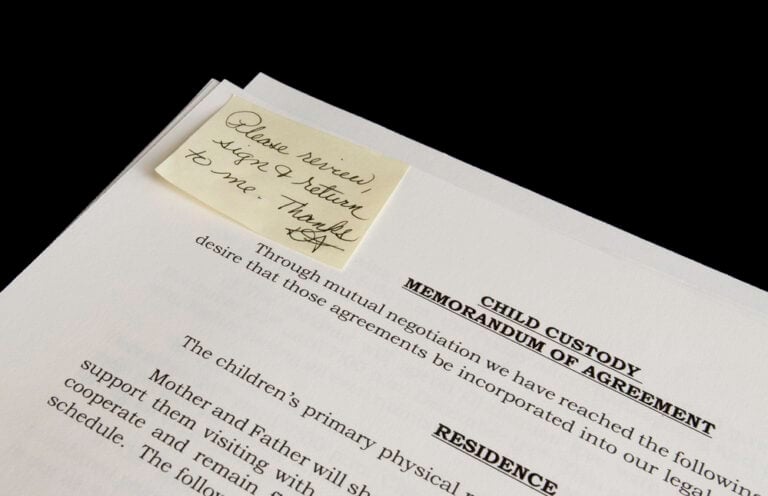 Please review,
sign & return
to me. Thanks
CHILD CUSTODY
MEMORANDUM OF AGREEMENT
Through mutual negotiation we have reached the following
desire that those agreements be incorporated into our lega
RESIDENCE
The children's primary physical
Mother and Father will sh
support them visiting with
cooperate and remain
schedule. The follow